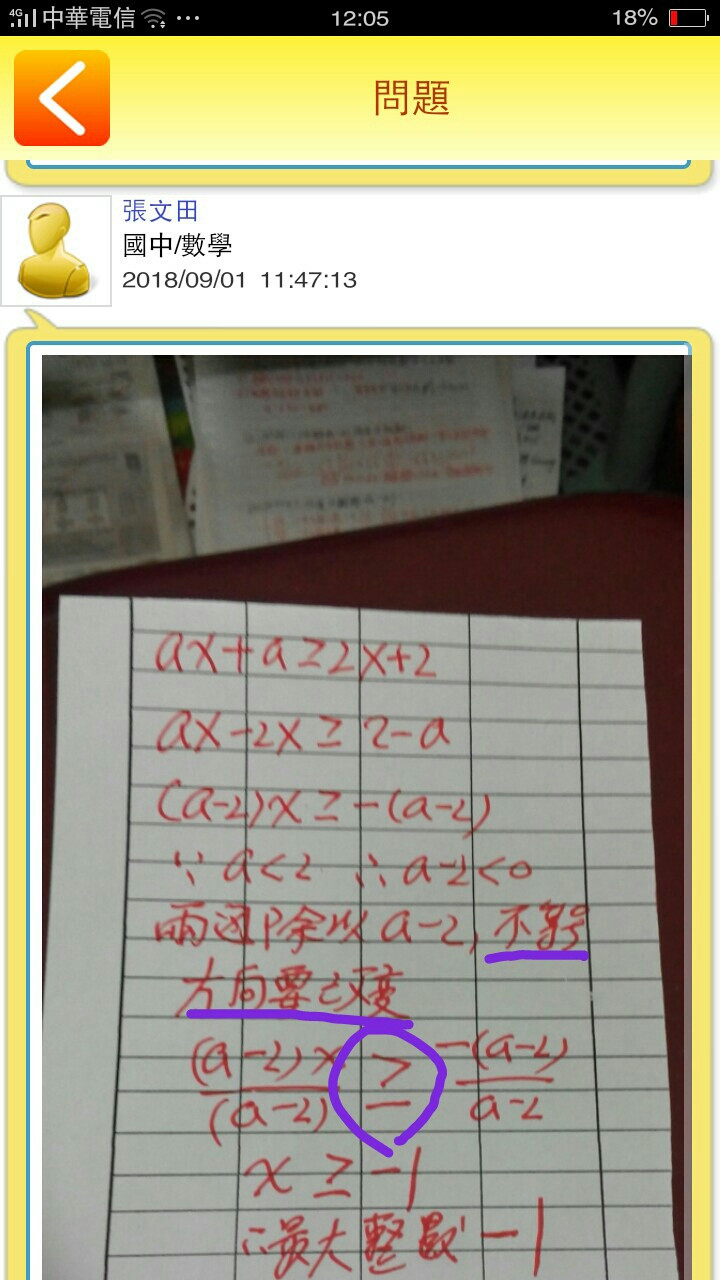 4G 中華電信 ... 12:05 18%
問題
張文田
國中/數學
2018/09/01 11:47:13
ax+a≥2x+2
ax-2x≥2-a
(a-2)x≥-(a-2)
∵a<2 ∴a-2<0
兩边除以a-2, 不等号
方向要改变
(a-2)x/(a-2) ≥ -(a-2)/a-2
x≥-1
∴最大整數-1